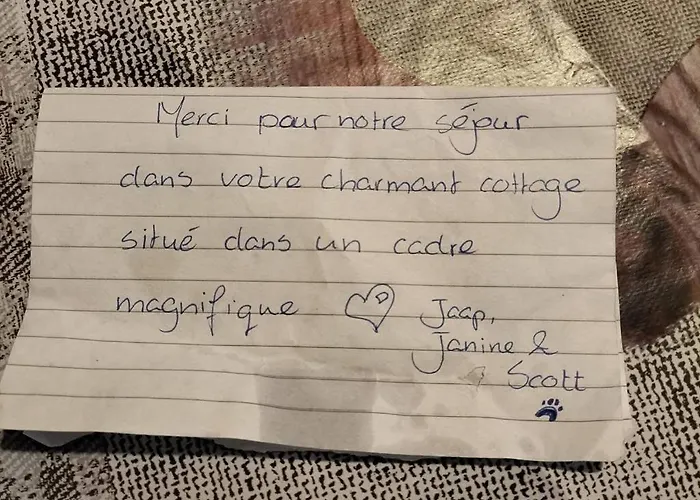 Merci pour notre séjour
dans votre charmant cottage
situé dans un cadre
magnifique Jaap,
Janine &
Scott